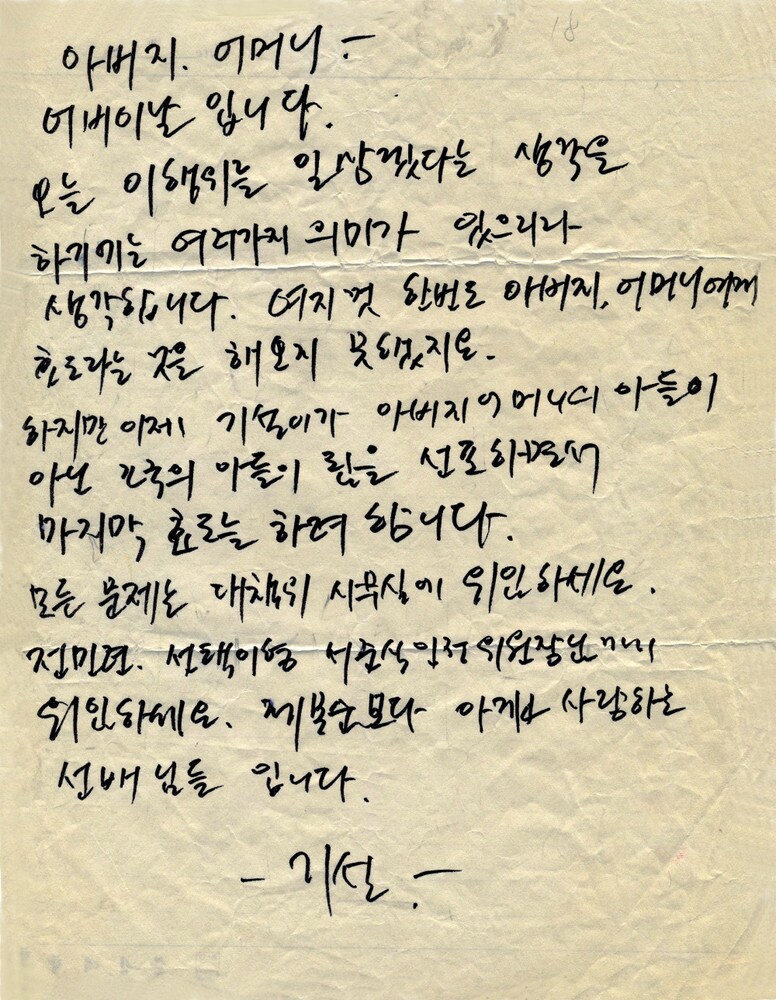 아버지. 어머니 ㅡ
어버이날 입니다.
오늘 이행위를 일삼겠다는 생각을
하기까지는 여러가지 의미가 있으리라
생각합니다. 여지껏 한번도 아버지, 어머니에게
효도라는 것을 해오지 못했지요.
하지만 이제 기설이가 아버지 어머니의 아들이
아닌 조국의 아들이 됨을 선포하면서
마지막 효도를 하려 합니다.
모든 문제는 대책위 사무실에 위임하세요.
전민련. 선택이형 서준식 인권위원장님께
위임하세요. 제 분신보다 아끼고 사랑하는
선배님들 입니다.
- 기설. -
18